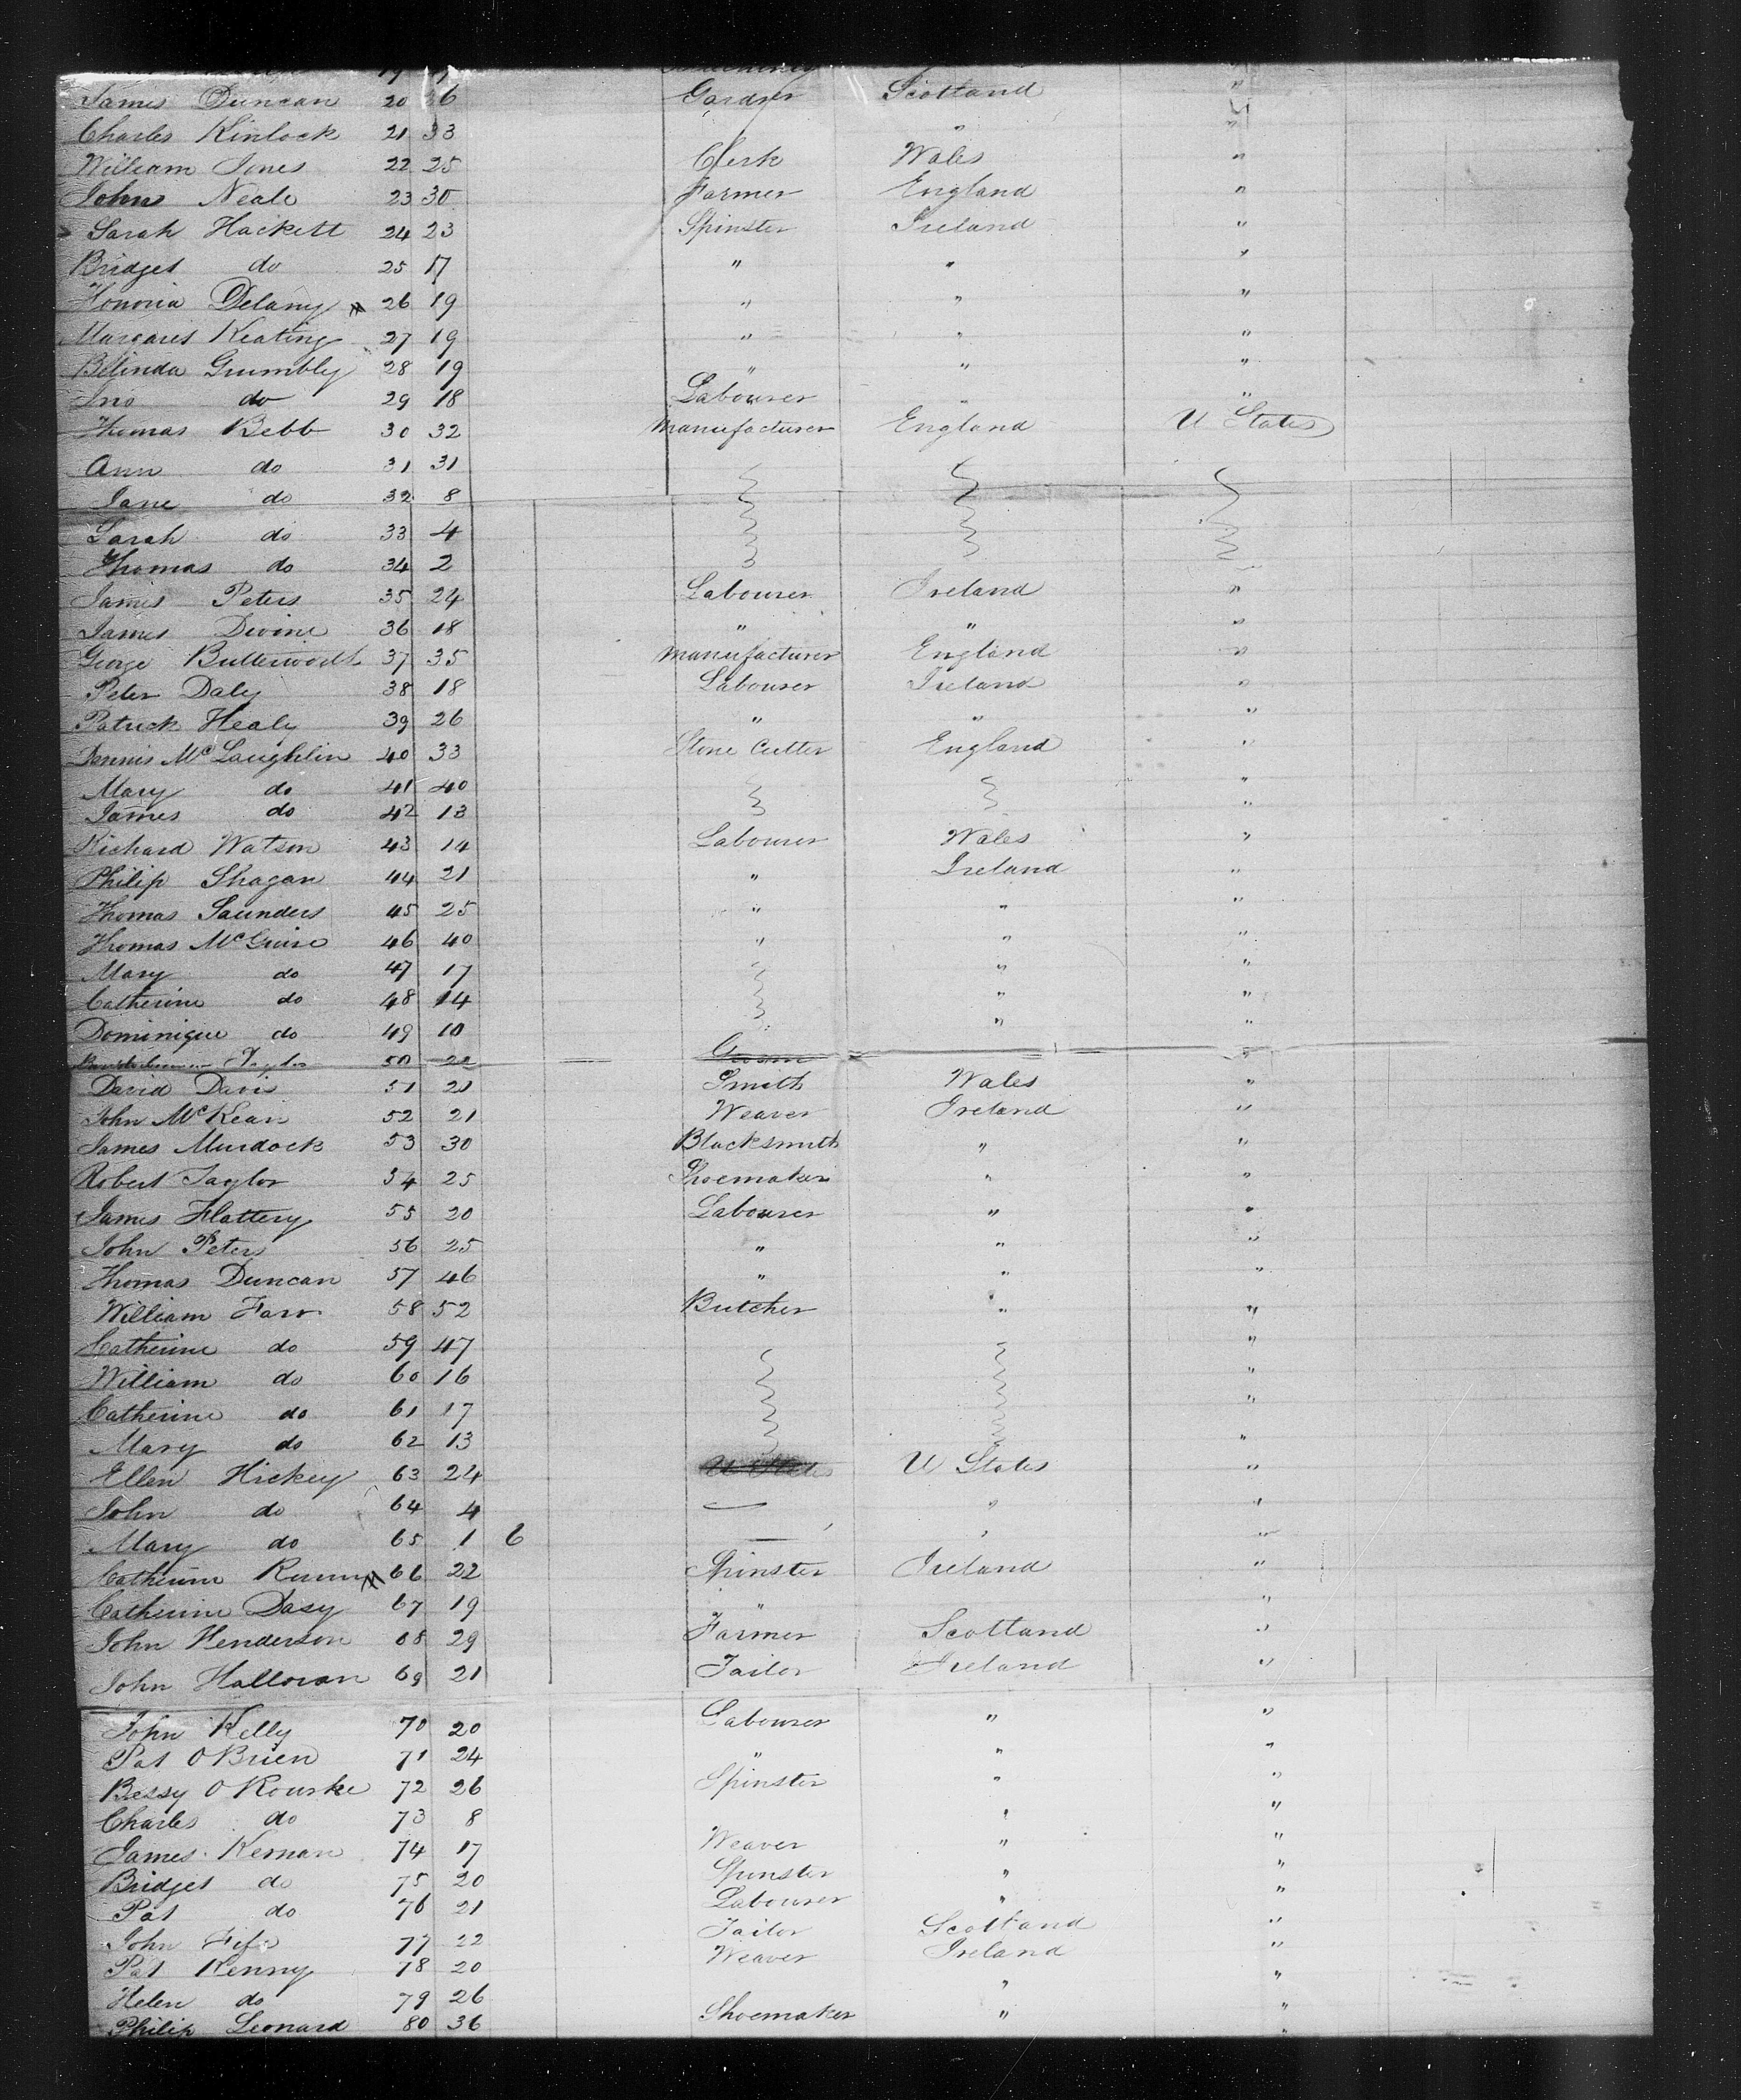 19
James Duncan 20 26 Gardner Scotland "
Charles Kinlock 21 33 " "
William Jones 22 25 Clerk Wales "
John Neale 23 30 Farmer England "
Sarah Hackett 24 23 Spinster Ireland "
Bridget do 25 17 " " "
Honoria Delany 26 19 " " "
Margaret Keating 27 19 " " "
Belinda Grumbly 28 19 " " "
Jno do 29 18 Labourer " "
Thomas Bebb 30 32 Manufacturer England U States
Ann do 31 31
Jane do 32 8
Sarah do 33 4
Thomas do 34 2
James Peters 35 24 Labourer Ireland "
James Devine 36 18 " " "
George Butterworth 37 35 Manufacturer England "
Peter Daley 38 18 Labourer Ireland "
Patrick Healy 39 26 " " "
Dennis McLaughlin 40 33 Stone Cutter England "
Mary do 41 40 "
James do 42 13 "
Richard Watson 43 14 Labourer Wales "
Philip Shagan 44 21 " Ireland "
Thomas Saunders 45 25 " " "
Thomas McGuire 46 40 " " "
Mary do 47 17 " "
Catherine do 48 14 " "
Dominique do 49 10 " "
Taylor 50 22 Groom "
David Davis 51 21 Smith Wales "
John McKean 52 21 Weaver Ireland "
James Murdock 53 30 Blacksmith " "
Robert Taylor 54 25 Shoemaker " "
James Flattery 55 20 Labourer " "
John Peters 56 25 " " "
Thomas Duncan 57 46 " " "
William Farr 58 52 Butcher " "
Catherine do 59 47 "
William do 60 16 "
Catherine do 61 17 "
Mary do 62 13 "
Ellen Hickey 63 24 U States U States "
John do 64 4 — " "
Mary do 65 1 6 — " "
Catherine 66 22 Spinster Ireland "
Catherine Dasy 67 19 " "
John Henderson 68 29 Farmer Scotland "
John Halloran 69 21 Tailor Ireland "
John Kelly 70 20 Labourer " "
Pat O Brien 71 24 " " "
Bessy O Rourke 72 26 Spinster " "
Charles do 73 8 " "
James Kernan 74 17 Weaver " "
Bridget do 75 20 Spinster " "
Pat do 76 21 Labourer " "
John Fife 77 22 Tailor Scotland "
Pat Kenny 78 20 Weaver Ireland "
Helen do 79 26 " "
Philip Leonard 80 36 Shoemaker " "